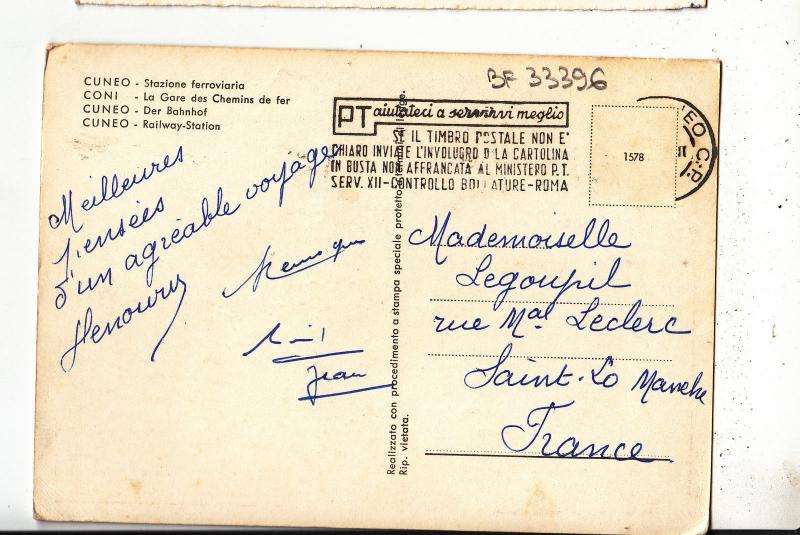 BF 33396
CUNEO - Stazione ferroviaria
CONI - La Gare des Chemins de fer
CUNEO - Der Bahnhof
CUNEO - Railway-Station
PT aiutateci a servirvi meglio
SE IL TIMBRO POSTALE NON E'
CHIARO INVIATE L'INVOLUCRO O LA CARTOLINA
IN BUSTA NON AFFRANCATA AL MINISTERO P.T.
SERV. XII-CONTROLLO BOLLATURE-ROMA
1578
EO C.P.
II
Meilleures
Pensées
d'un agréable voyage
Jean
Mademoiselle
Legoupil
rue Mal Leclerc
Saint-Lô Manche
France
Realizzato con procedimento a stampa speciale protetto
Rip. vietata.